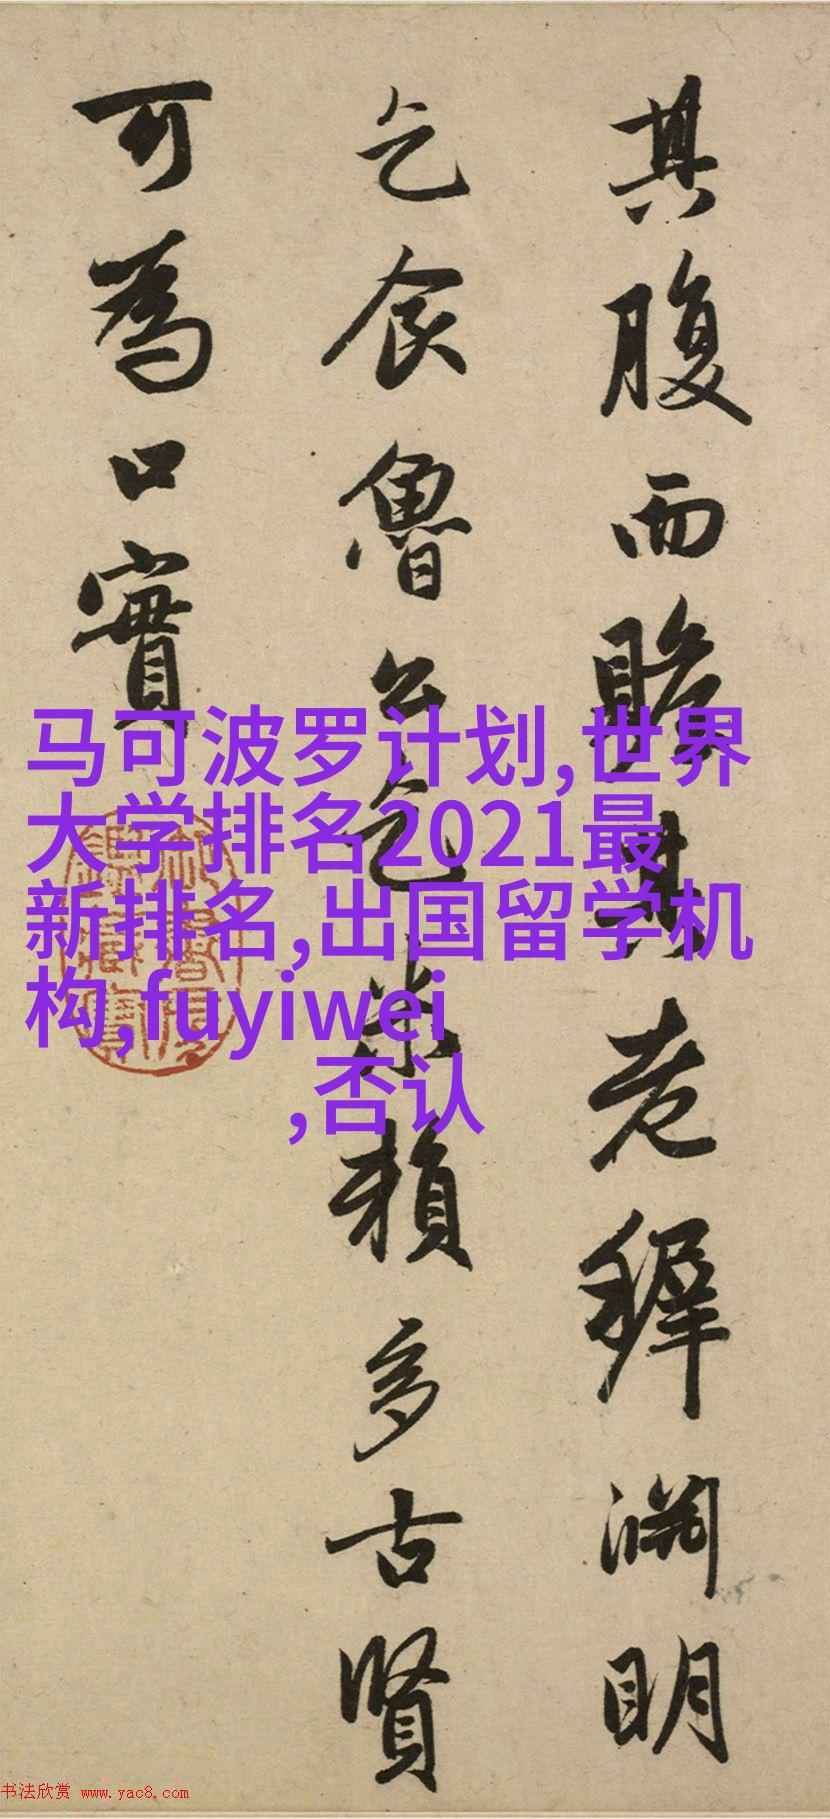 其腹而贍其老稺淵明
乞食魯公乞米賴多古賢
可為口實
马可波罗计划,世界
大学排名2021最
新排名,出国留学机
构,fuyiwei
,否认
书法欣赏 www.yac8.com